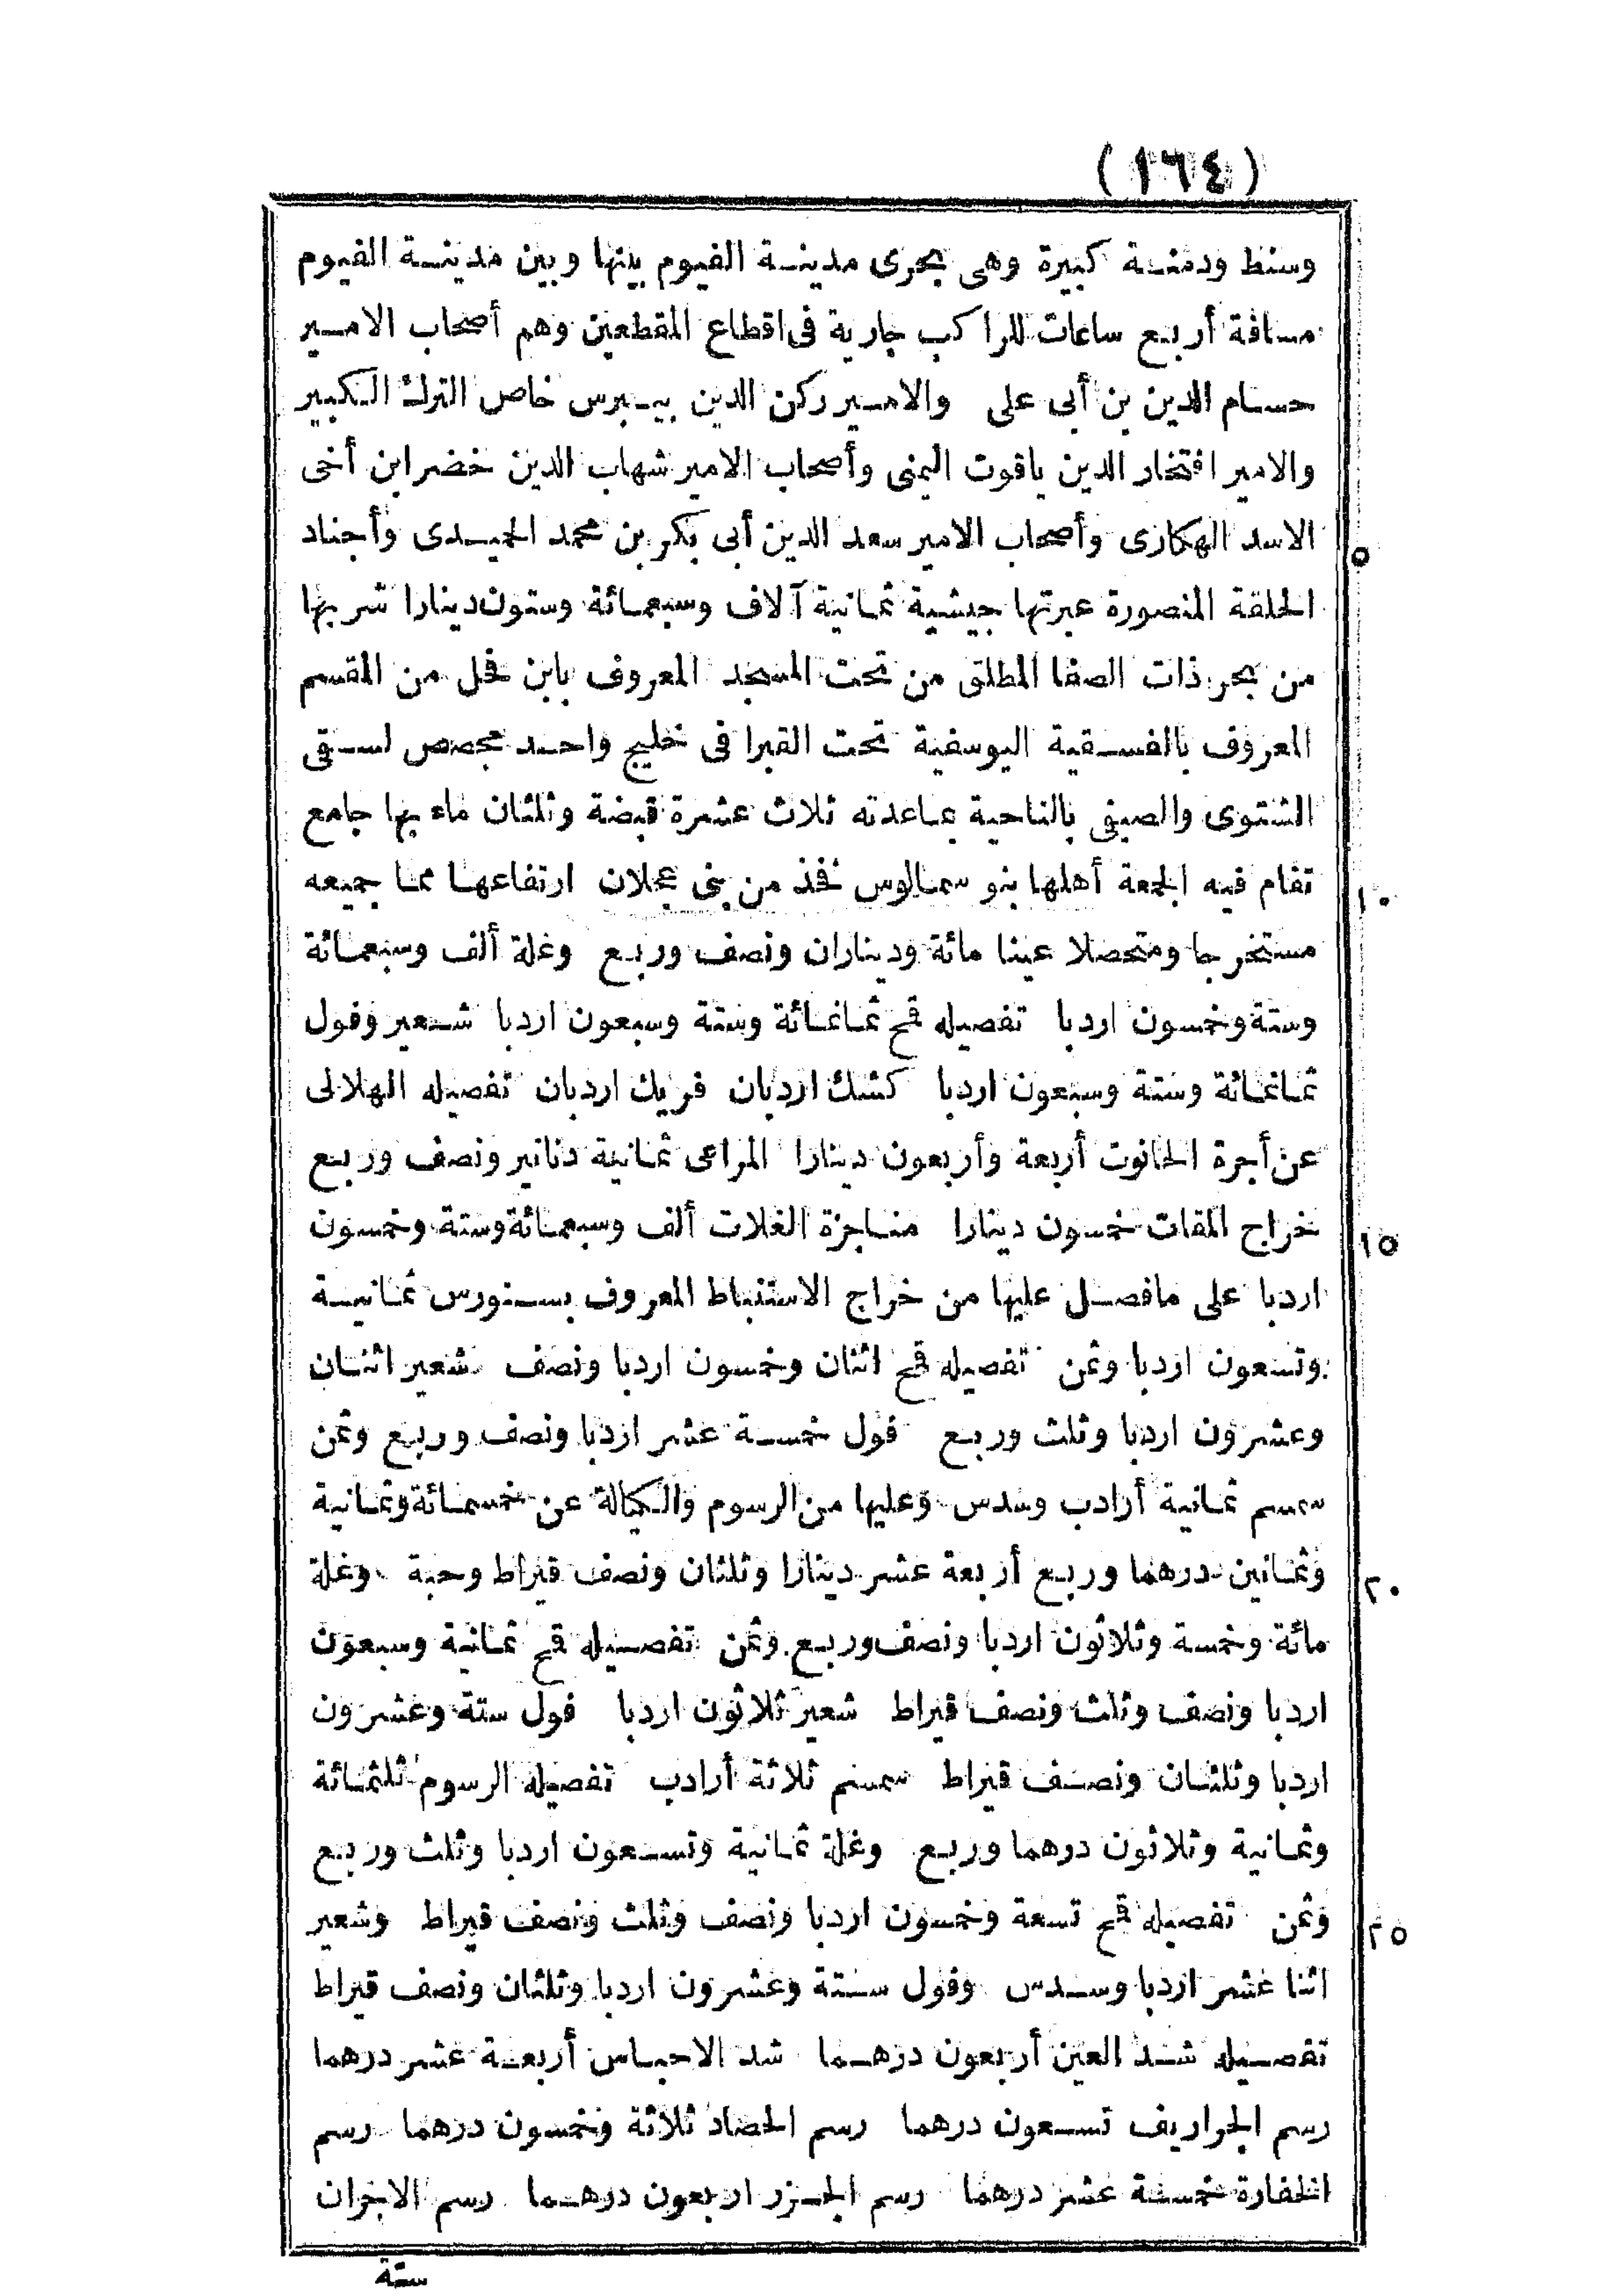 (١٦٤)
وسنط ودمنة كبيرة وهى بحرى مدينة الفيوم بينها وبين مدينة الفيوم
مسافة أربع ساعات للراكب جارية فى اقطاع المقطعين وهم أصحاب الامير
حسام الدين بن أبى على والامير ركن الدين بيبرس خاص الترك الكبير
والامير افتخار الدين ياقوت اليمنى وأصحاب الامير شهاب الدين خضر ابن أخى
الاسد الهكارى وأصحاب الامير سعد الدين أبى بكر بن محمد الحميدى وأجناد
٥
الحلقة المنصورة عبرتها جيشية ثمانية آلاف وسبعمائة وستون دينارا شربها
من بحر ذات الصفا المطلق من تحت المسجد المعروف بابن فحل من المقسم
المعروف بالفسقية اليوسفية تحت القبرا فى خليج واحد مجصص لسقى
الشتوى والصيفى بالناحية بماعدته ثلاث عشرة قبضة وثلثان ماء بها جامع
تقام فيه الجمعة أهلها بنو سمالوس فخذ من بنى عجلان ارتفاعها مما جميعه
١٠
مستخرجا ومتحصلا عينا مائة وديناران ونصف وربع وغلة ألف وسبعمائة
وستة وخمسون اردبا تفصيله قمح ثمانمائة وستة وسبعون اردبا شعير وفول
ثمانمائة وستة وسبعون اردبا كشك اردبان فريك اردبان تفصيله الهلالى
عن أجرة الحانوت أربعة وأربعون دينارا المراعى ثمانية دنانير ونصف وربع
خراج المقات خمسون دينارا مناجزة الغلات ألف وسبعمائة وستة وخمسون
١٥
اردبا على مافصل عليها من خراج الاستنباط المعروف بسنورس ثمانية
وتسعون اردبا وثمن تفصيله قمح اثنان وخمسون اردبا ونصف شعير اثنان
وعشرون اردبا وثلث وربع فول خمسة عشر اردبا ونصف وربع وثمن
سمسم ثمانية أرادب وسدس وعليها من الرسوم والكيالة عن خمسمائة وثمانية
وثمانين درهما وربع أربعة عشر دينارا وثلثان ونصف قيراط وحبة وغلة
٢٠
مائة وخمسة وثلاثون اردبا ونصف وربع وثمن تفصيله قمح ثمانية وسبعون
اردبا ونصف وثلث ونصف قيراط شعير ثلاثون اردبا فول ستة وعشرون
اردبا وثلثان ونصف قيراط سمسم ثلاثة أرادب تفصيله الرسوم ثلثمائة
وثمانية وثلاثون درهما وربع وغلة ثمانية وتسعون اردبا وثلث وربع
وثمن تفصيله قمح تسعة وخمسون اردبا ونصف وثلث ونصف قيراط وشعير
٢٥
اثنا عشر اردبا وسدس وفول ستة وعشرون اردبا وثلثان ونصف قيراط
تفصيله شد العين أربعون درهما شد الاحباس أربعة عشر درهما
رسم الجراريف تسعون درهما رسم الحصاد ثلاثة وخمسون درهما رسم
الخفارة خمسة عشر درهما رسم الجزر اربعون درهما رسم الاجران
ستة